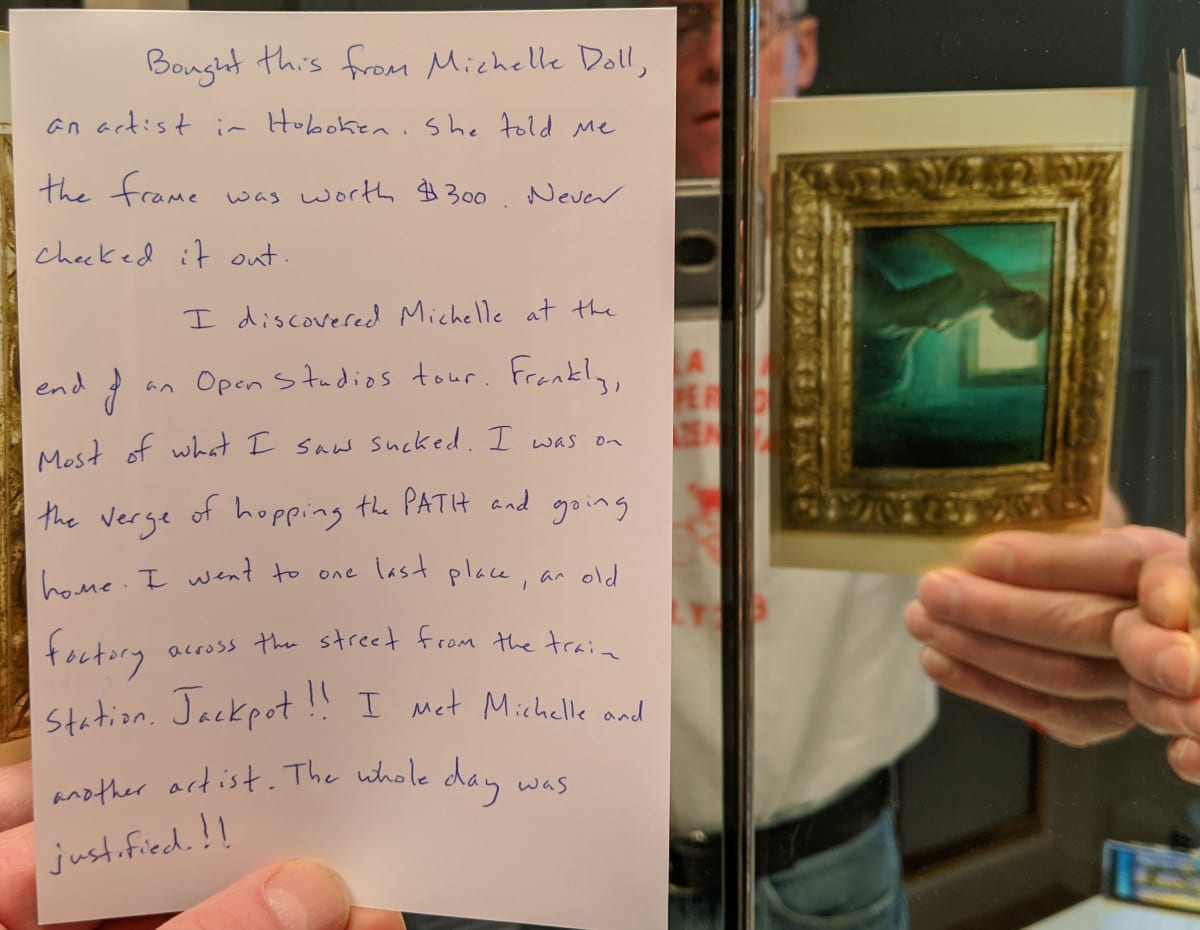 Bought this from Michelle Doll,
an artist in Hoboken. She told me
the frame was worth $300. Never
checked it out.
I discovered Michelle at the
end of an Open Studios tour. Frankly,
Most of what I saw sucked. I was on
the verge of hopping the PATH and going
home. I went to one last place, an old
factory across the street from the train
station. Jackpot!! I met Michelle and
another artist. The whole day was
justified.!!